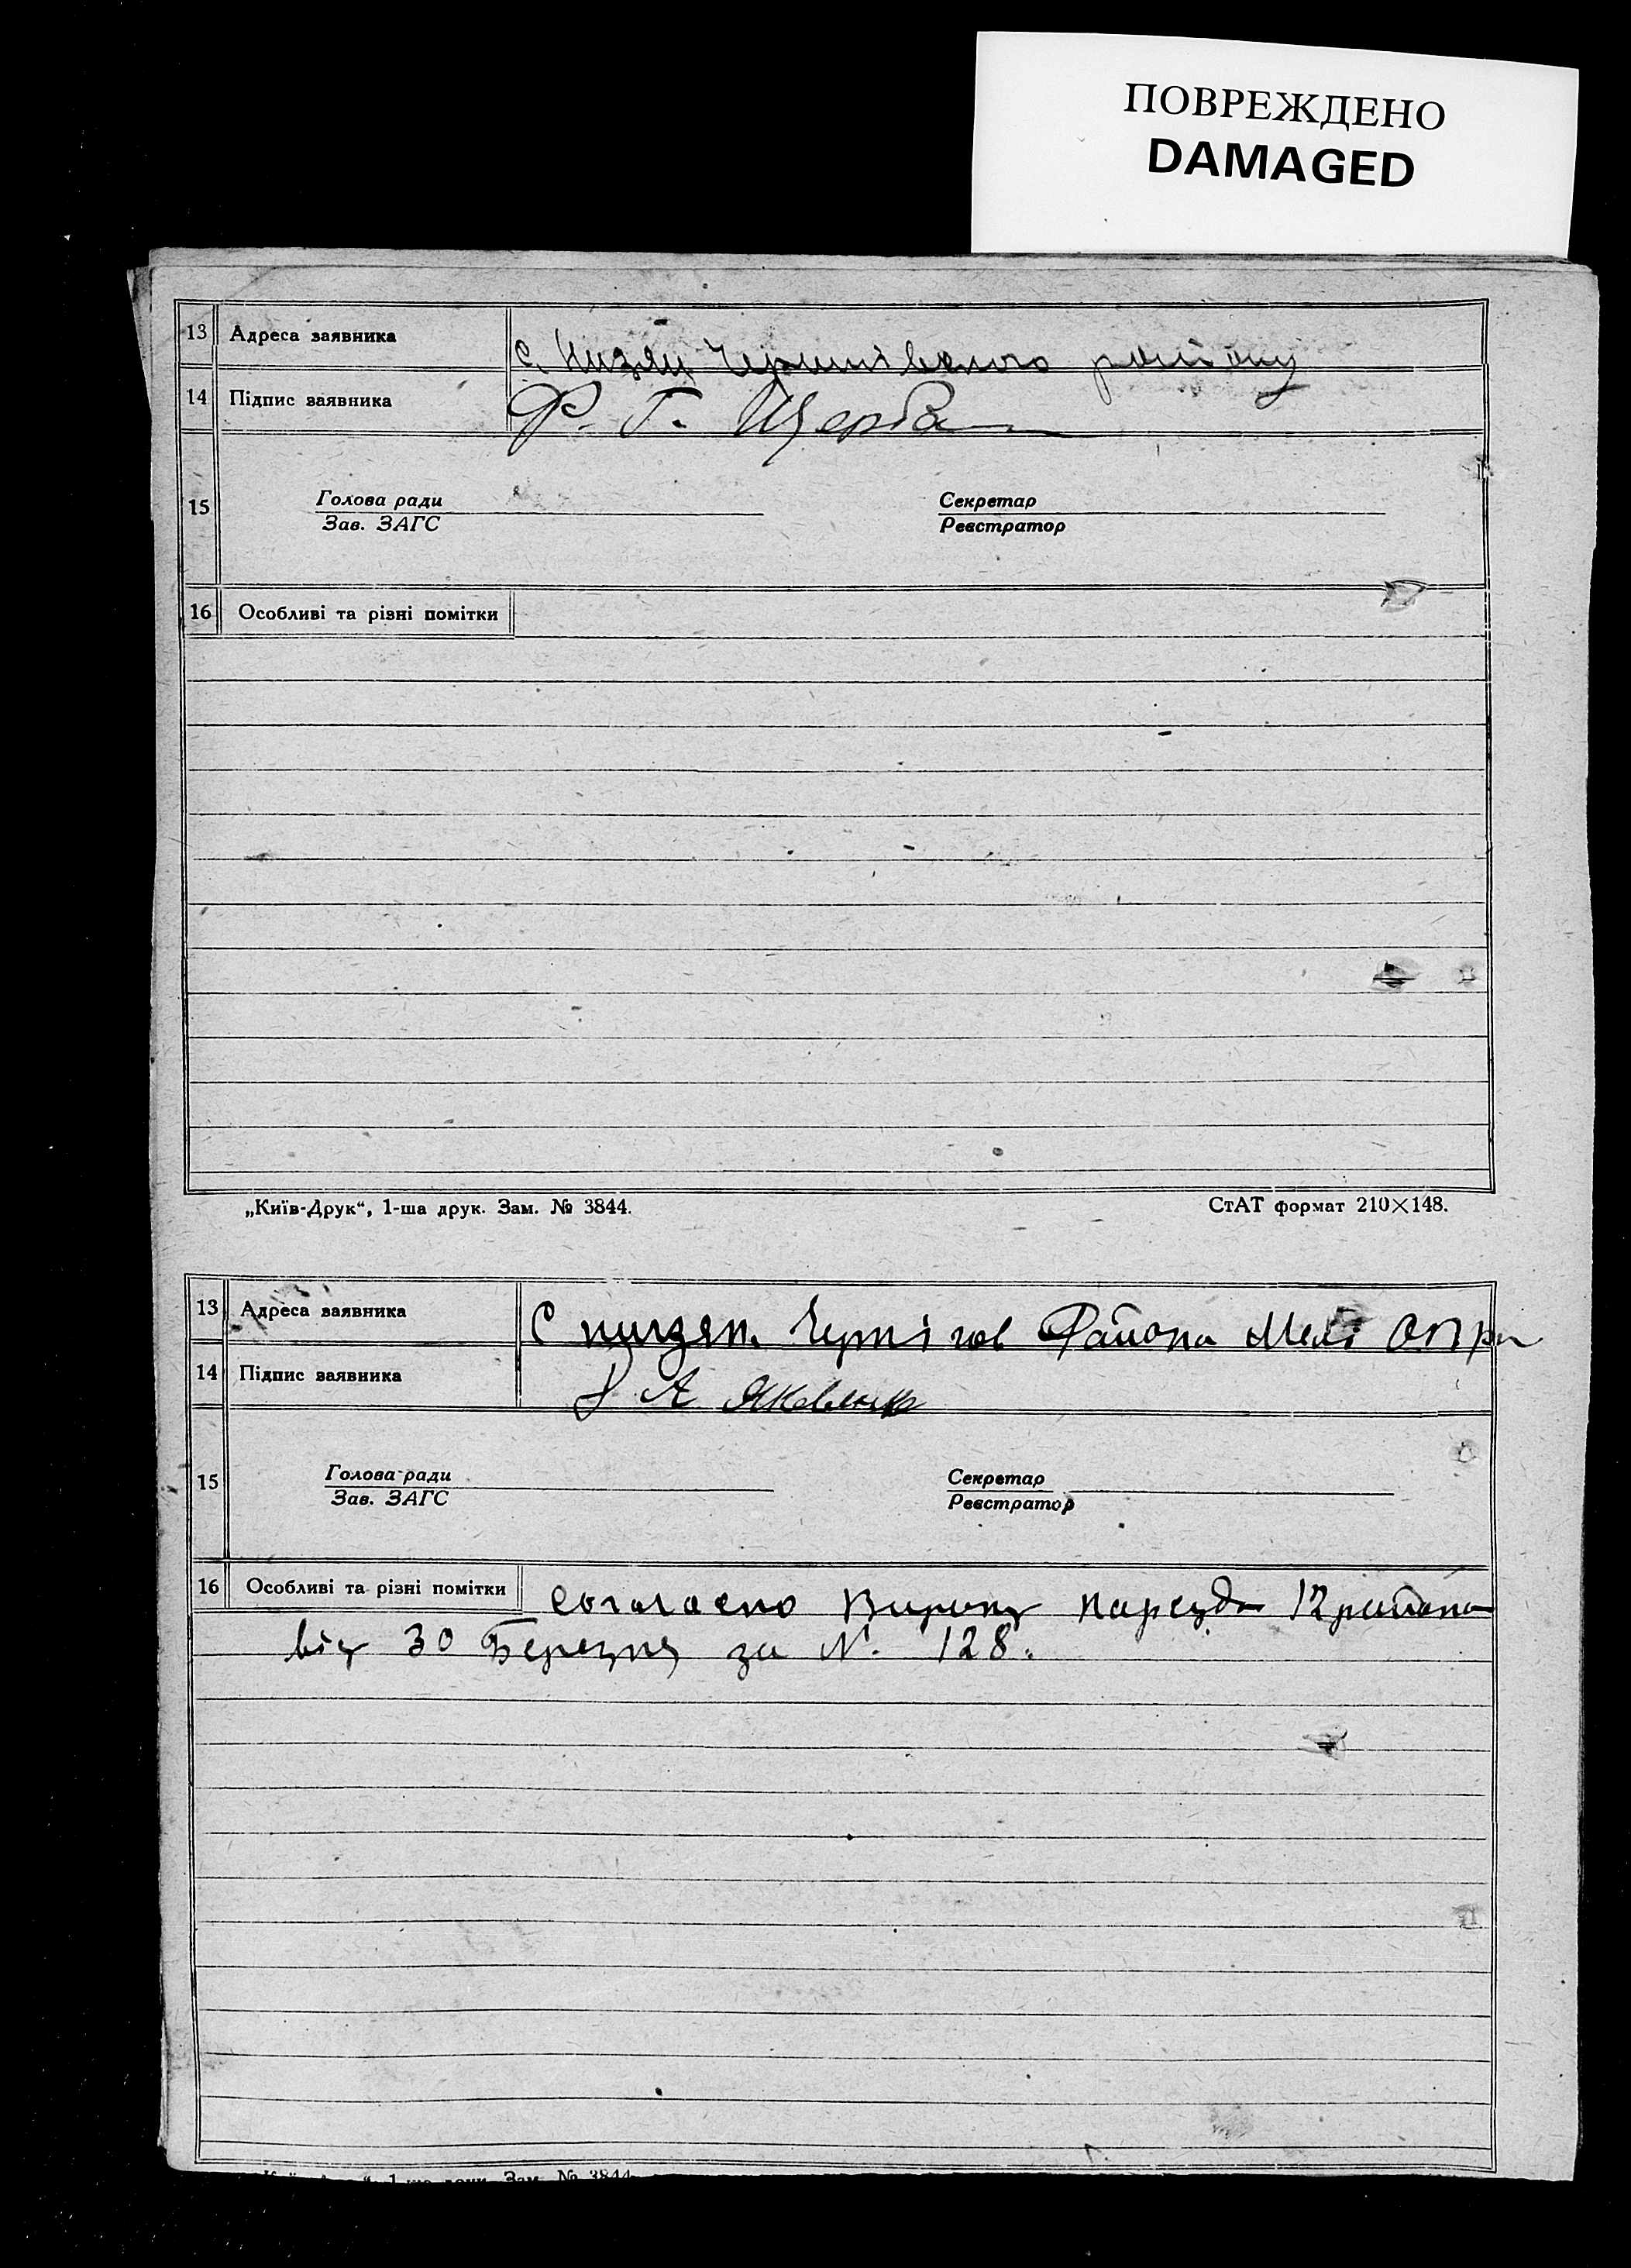 ПОВРЕЖДЕНО
DAMAGED
13 Адреса заявника с. Низян району
14 Підпис заявника Ф. Г. Щерба
15 Голова ради Секретар
Зав. ЗАГС Реєстратор
16 Особливі та різні помітки
„Київ-Друк“, 1-ша друк. Зам. № 3844. СтАТ формат 210×148.
13 Адреса заявника С низян. Чертігов Района Меліт
14 Підпис заявника А
15 Голова ради Секретар
Зав. ЗАГС Реєстратор
16 Особливі та різні помітки согласно Вироку Нарсуда 12 района
від 30 Березня за N. 128.
1-ша друк. Зам. № 3844.